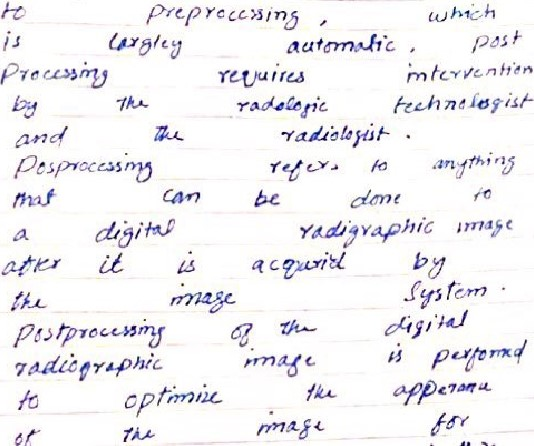 to preprocessing, which
is largley automatic, post
Processing requires intervention
by the radologic technologist
and the radiologist.
Posprocessing refers to anything
that can be done to
a digital radigraphic image
after it is acquried by
the image system.
Postprocessing of the digital
radiographic image is performed
to optimize the apperance
of the image for